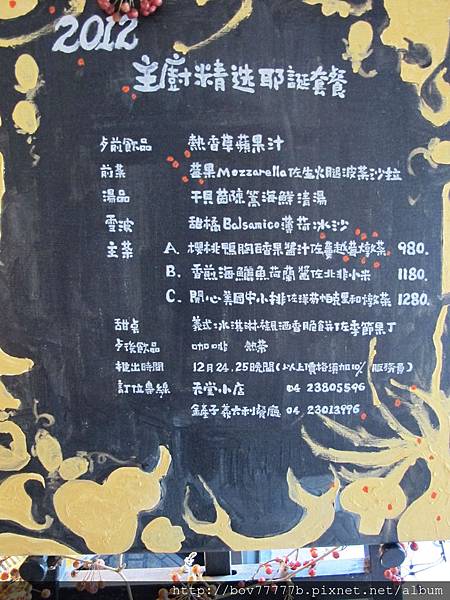 2012
主廚精选耶誕套餐
歺前飲品 熱香草蘋果汁
前菜 Mozzarella佐生火腿波菜沙拉
湯品 干貝茵陳蒿海鮮清湯
雪波 甜橘Balsamico薄荷冰沙
主菜 A. 櫻桃鴨胸百香果醬汁佐蔓越莓燉菜 980.
B. 香煎海鱺魚荷蘭醬佐北非小米 1180.
C. 開心美國牛小排佐洋芋帕克里和燉菜 1280.
甜点 義式冰淇淋襯酒香脆餅佐季節果丁
歺後飲品 咖啡 熱茶
推出時間 12月24.25晚間(以上價格須加10% 服務費)
訂位專線 天堂小店 04 23805596
義大利餐廳 04 23013996
http://bov77777b.pixnet.net/album